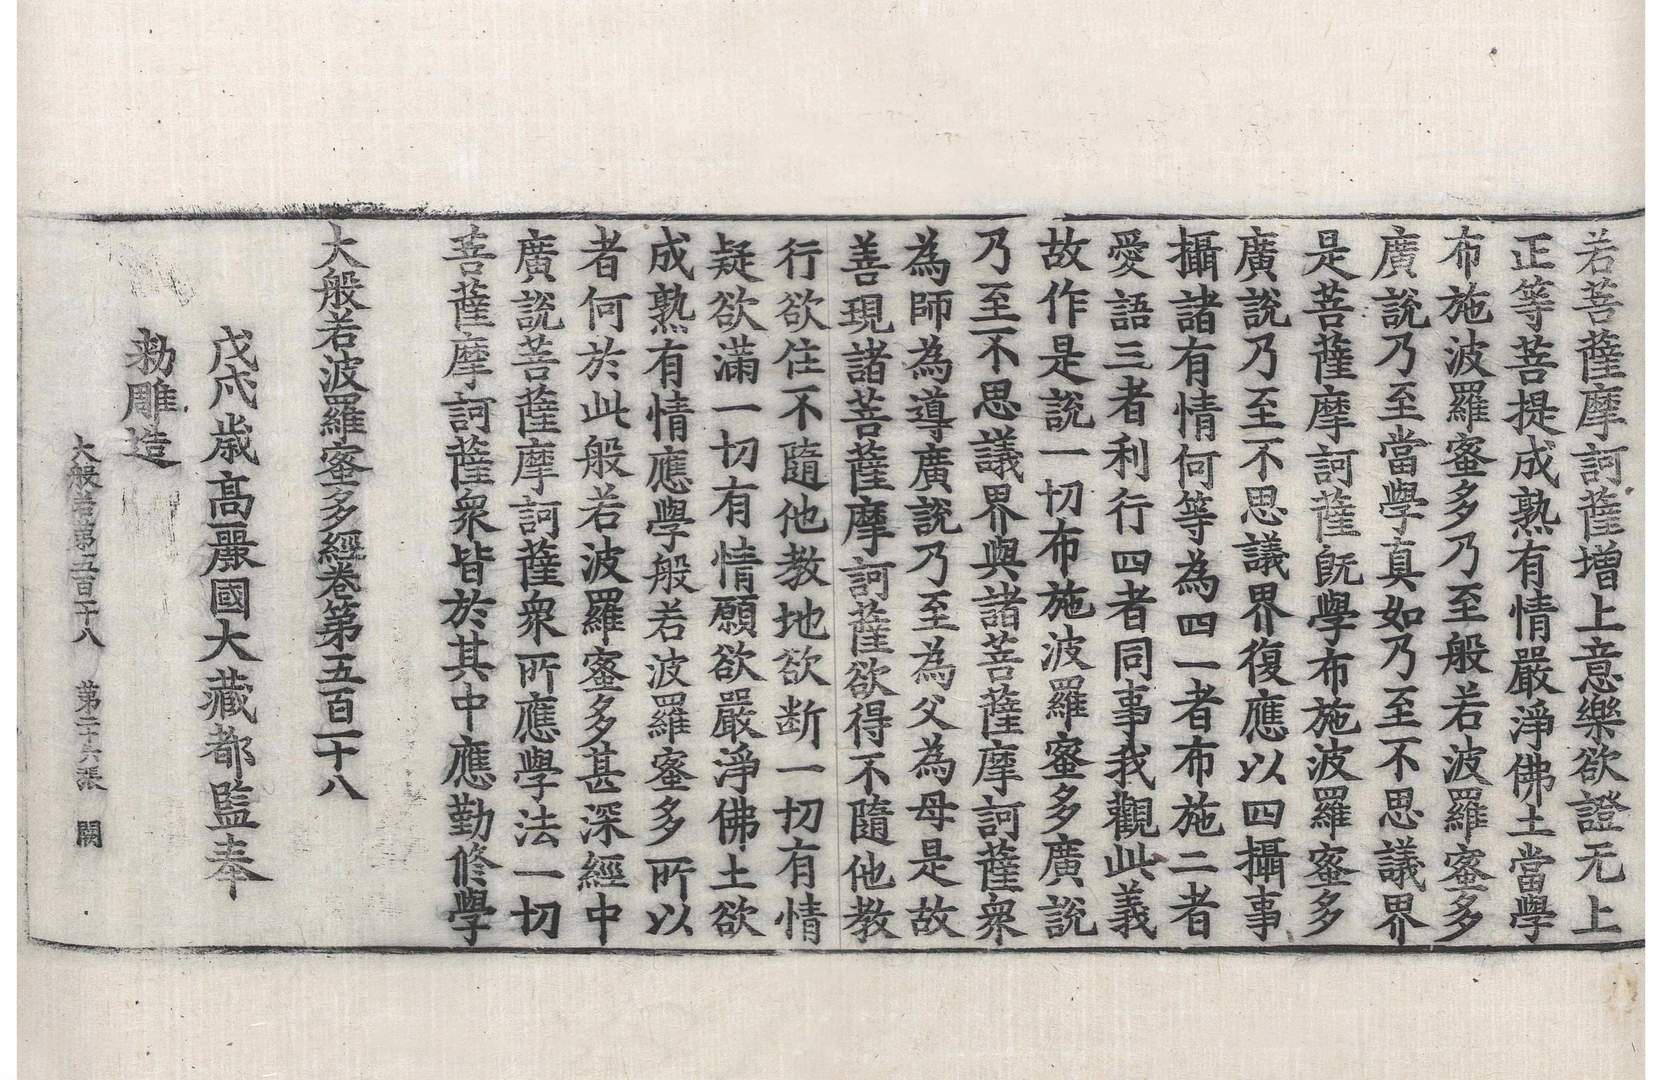 若菩薩摩訶薩增上意樂欲證无上
正等菩提成熟有情嚴淨佛土當學
布施波羅蜜多乃至般若波羅蜜多
廣說乃至當學真如乃至不思議界
是菩薩摩訶薩旣學布施波羅蜜多
廣說乃至不思議界復應以四攝事
攝諸有情何等為四一者布施二者
愛語三者利行四者同事我觀此義
故作是說一切布施波羅蜜多廣說
乃至不思議界與諸菩薩摩訶薩衆
為師為導廣說乃至為父為母是故
善現諸菩薩摩訶薩欲得不隨他教
行欲住不隨他教地欲断一切有情
疑欲滿一切有情願欲嚴淨佛土欲
成熟有情應學般若波羅蜜多所以
者何於此般若波羅蜜多甚深經中
廣說菩薩摩訶薩衆所應學法一切
菩薩摩訶薩衆皆於其中應勤修學
大般若波羅蜜多經卷第五百一十八
戊戌歲高麗國大藏都監奉
勑雕造
大般若第五百一十八 第二十六張 闕